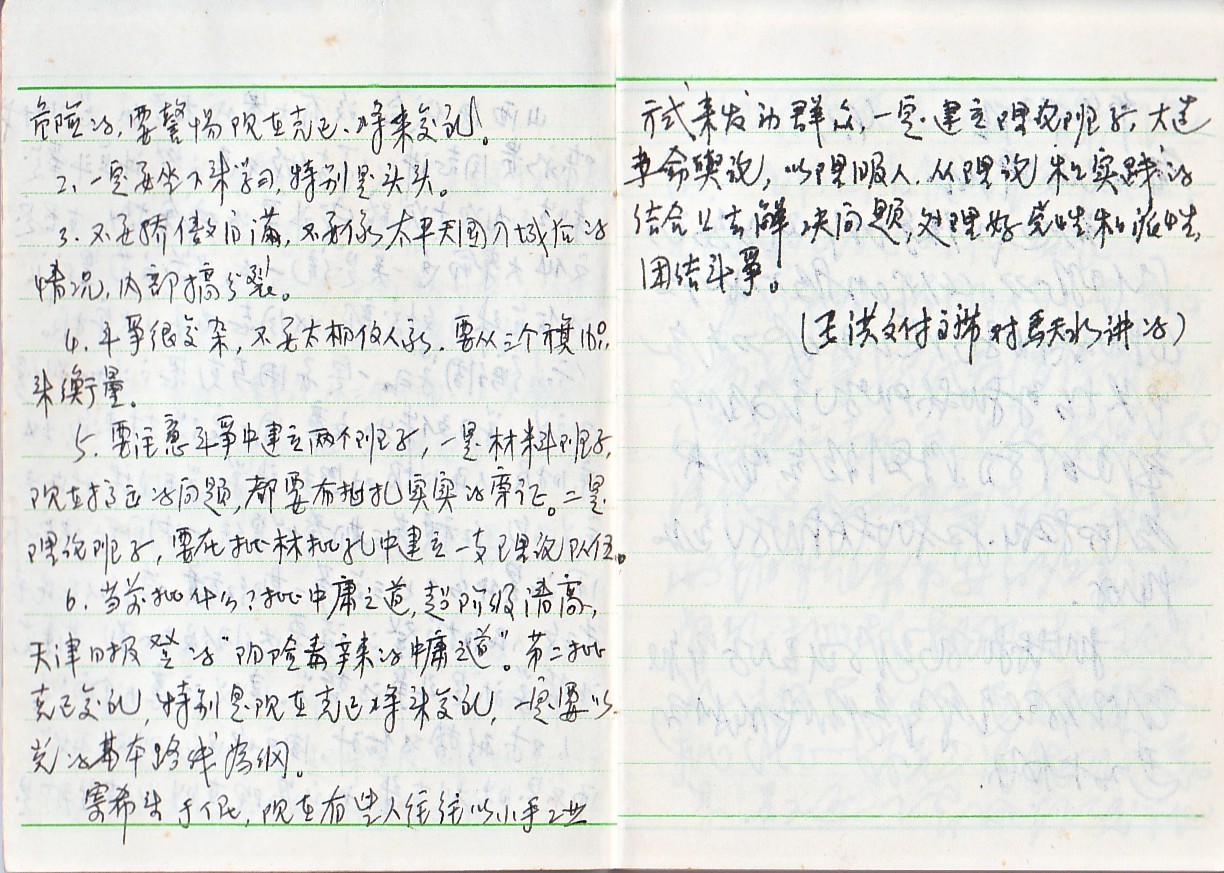 危险的,要警惕现在克己、将来复礼。
2、一定要坐下来学习,特别是头头。
3、不要骄傲自满,不要像太平天国入城后的
情况,内部搞分裂。
4、斗争很复杂,不要太相信人家,要从三个
来衡量。
5、要注意斗争中建立两个班子,一是材料班子,
现在揭出的问题,都要有扎扎实实的旁证。二是
理论班子,要在批林批孔中建立一支理论队伍。
6、当前批什么?批中庸之道,超阶级清高,
天津日报登的“阴险毒辣的中庸之道”。第二批
克己复礼,特别是现在克己将来复礼,一定要以
党的基本路线为纲。
寄希望于人民,现在有些人往往以小手工业
方式来发动群众,一定建立理论班子,大造
革命舆论,以理服人。从理论和实践的
结合上去解决问题,处理好党性和派性,
团结斗争。
(王洪文付主席对马天水讲的)